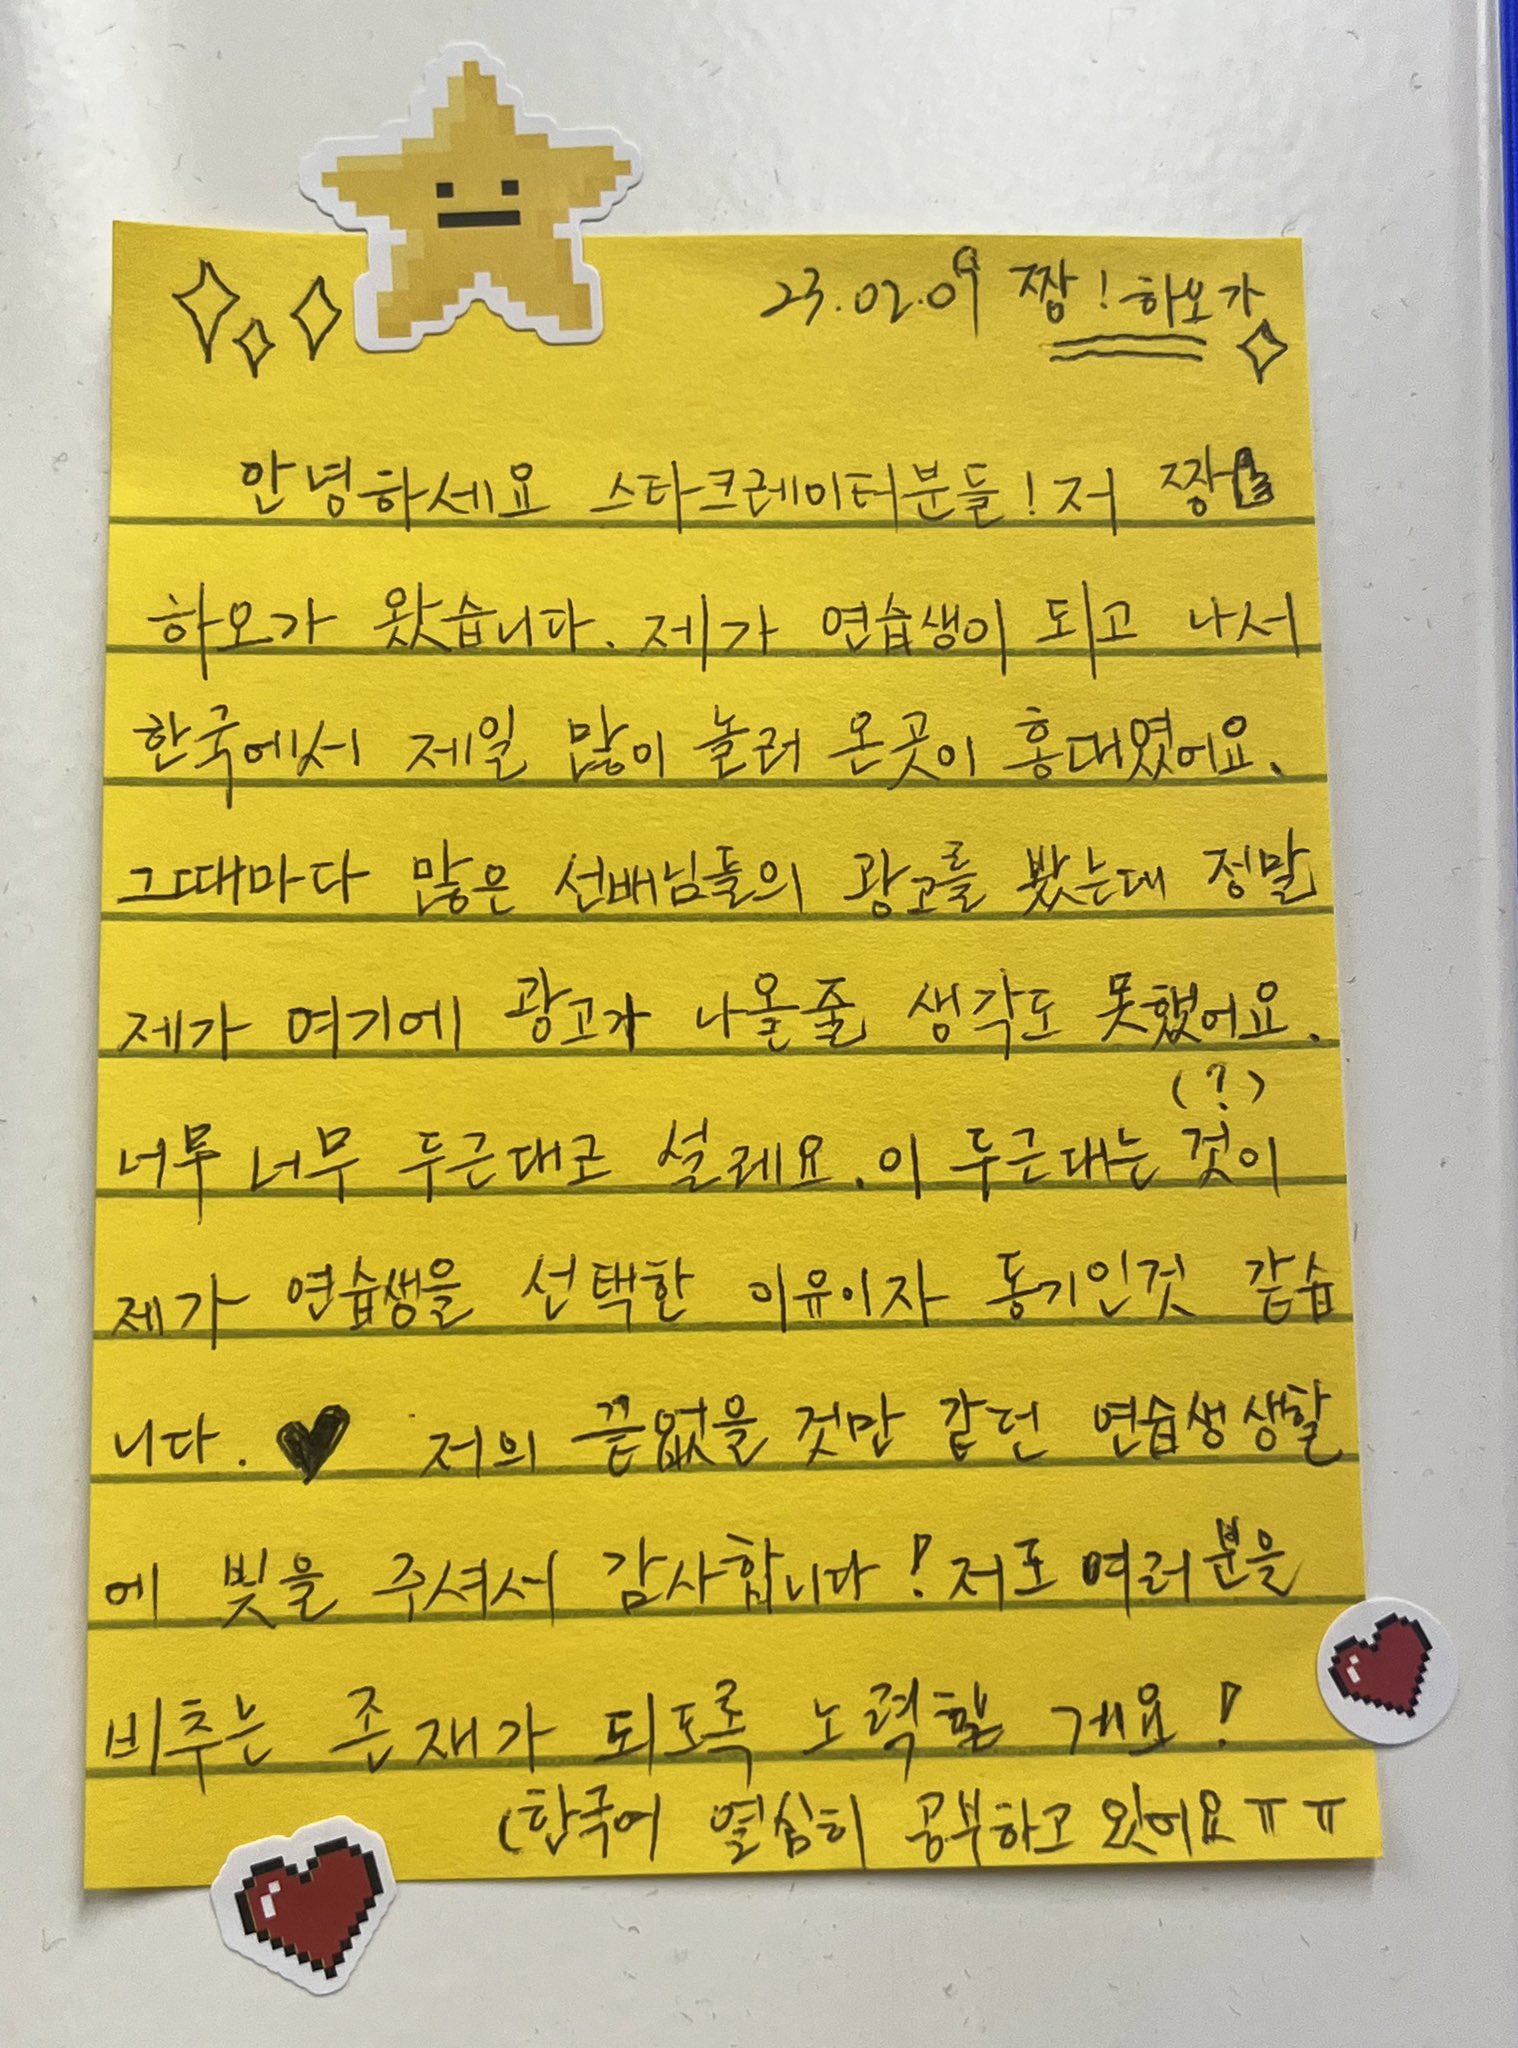 23.02.09 짱! 하오가
안녕하세요 스타크레이터분들! 저 짱
하오가 왔습니다. 제가 연습생이 되고 나서
한국에서 제일 많이 놀러 온곳이 홍대였어요.
그때마다 많은 선배님들의 광고를 봤는데 정말
제가 여기에 광고가 나올줄 생각도 못했어요.
(?)
너무 너무 두근대고 설레요. 이 두근대는 것이
제가 연습생을 선택한 이유이자 동기인것 같습
니다. ♥ 저의 끝없을 것만 같던 연습생 생활
에 빛을 주셔서 감사합니다! 저도 여러분을
비추는 존재가 되도록 노력할 게요!
(한국어 열심히 공부하고 있어요 ㅠㅠ